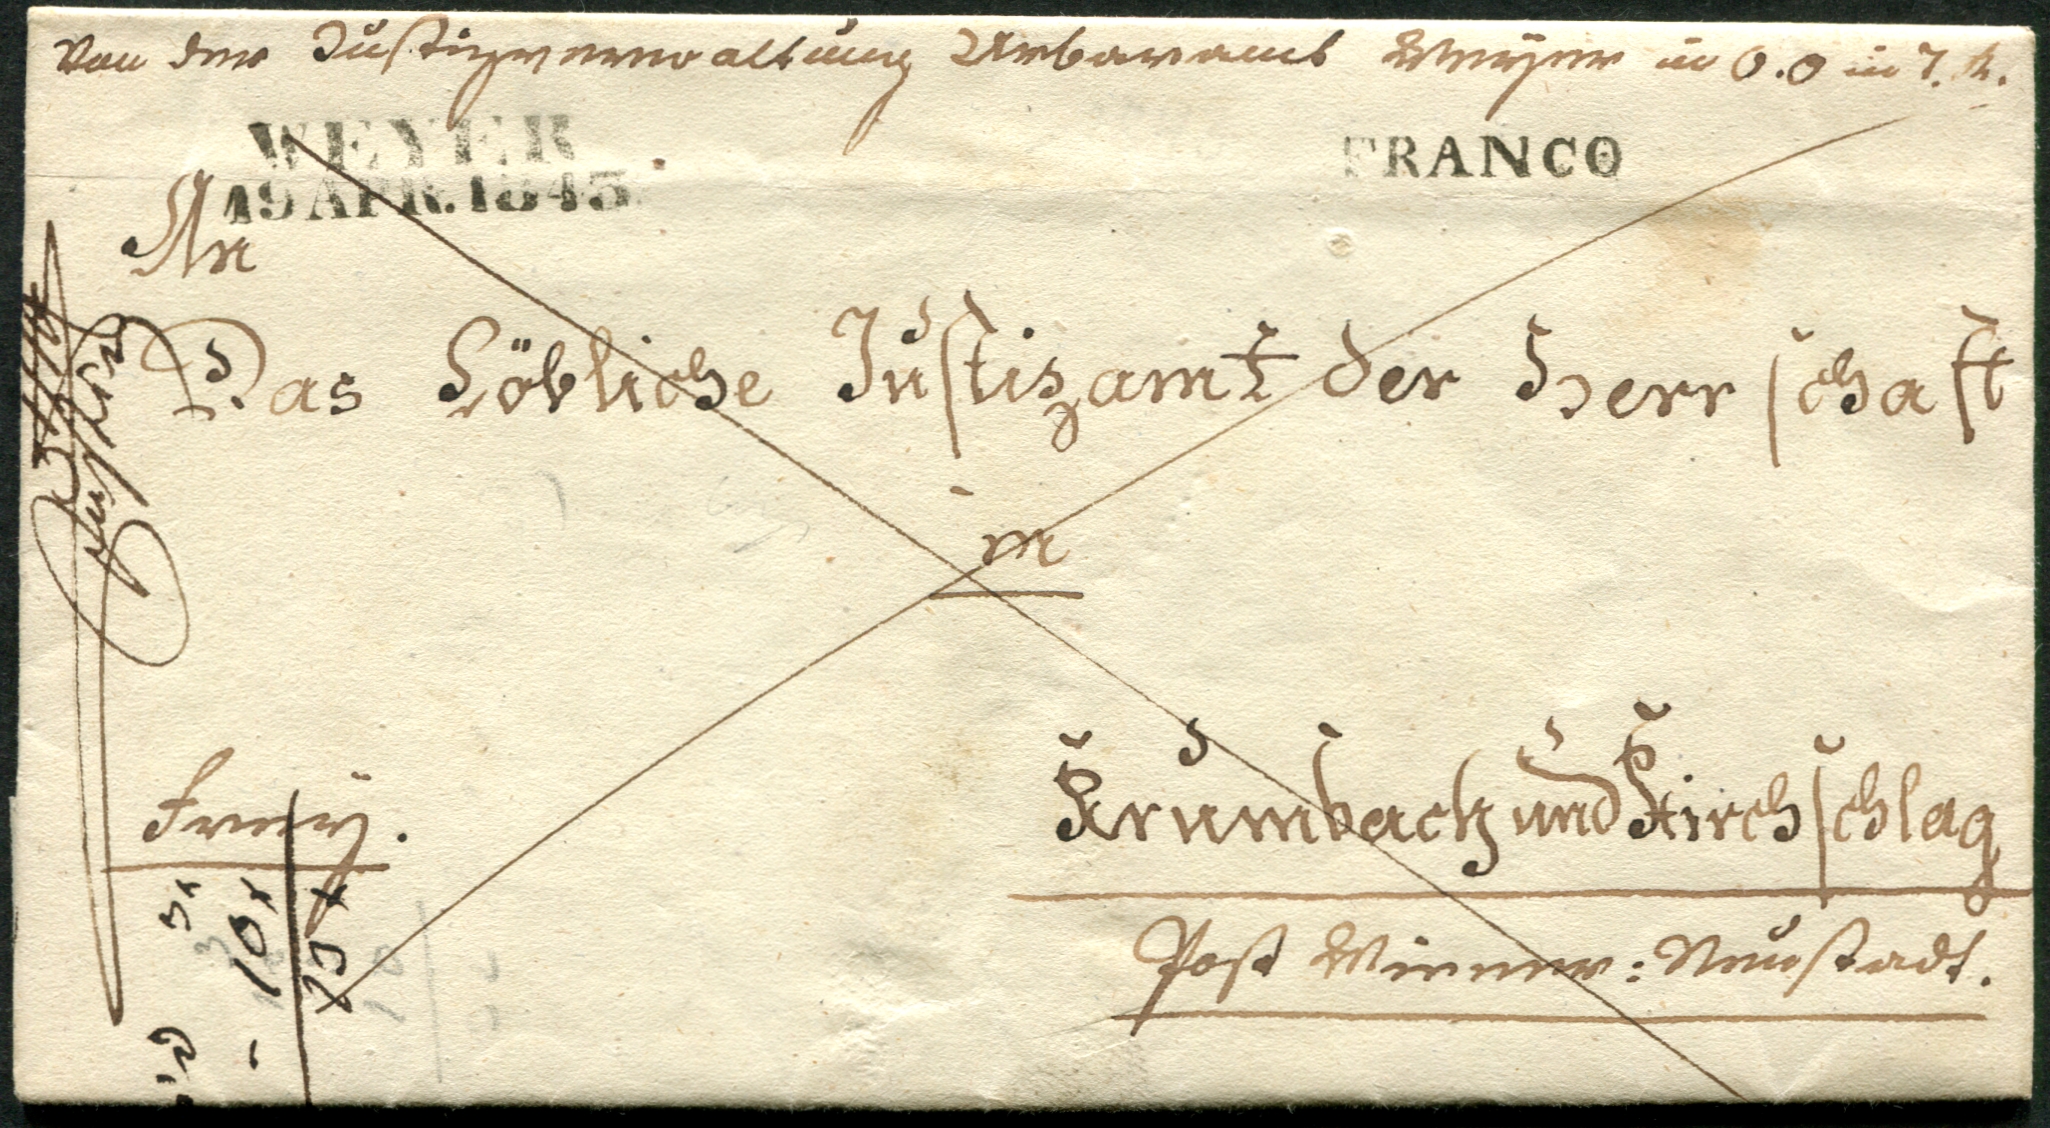 Von der Justizverwaltung Urbaramt Weyer in O.O in J. A.
WEYER
19 APR. 1843
FRANCO
An
Das Löbliche Justizamt der Herrschaft
in
Krumbach und Kirchschlag
Post Wiener: Neustadt.
Frey.
3x
10x